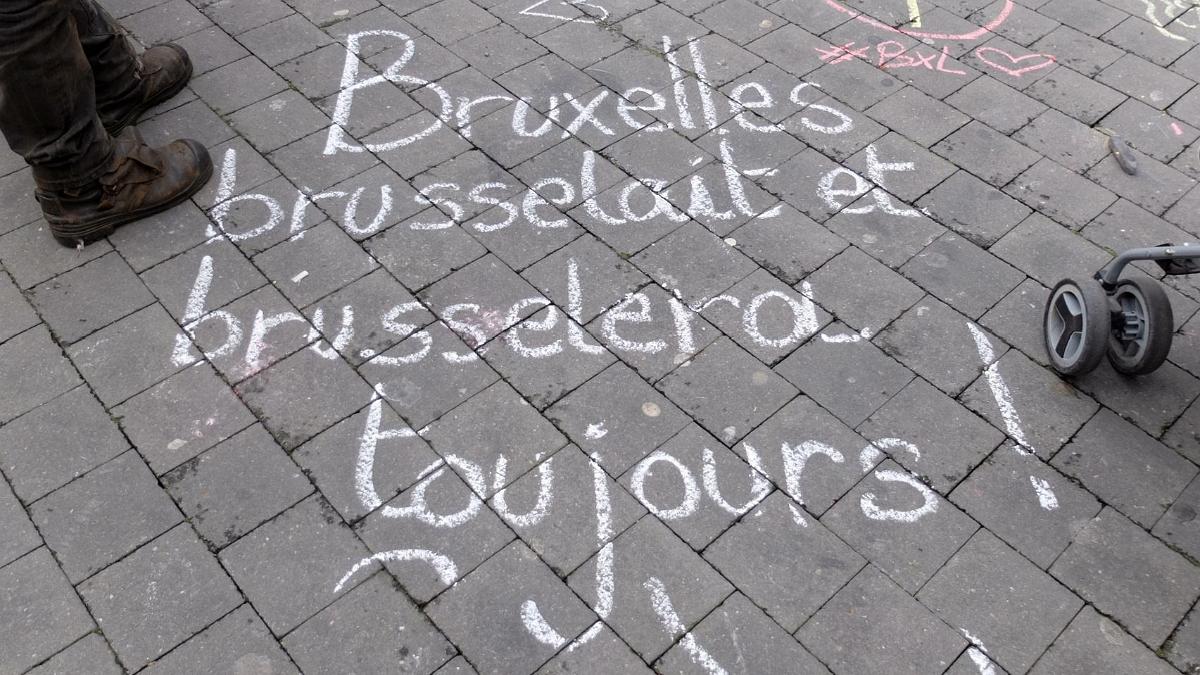 #BxL
Bruxelles
brusselait et
brusselera
toujours !